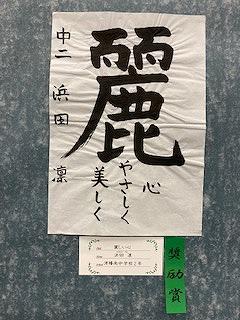 麗
心
やさしく
美しく
中二 浜田 凛
麗しい心
浜田 凛
津幡南中学校2年
奨励賞